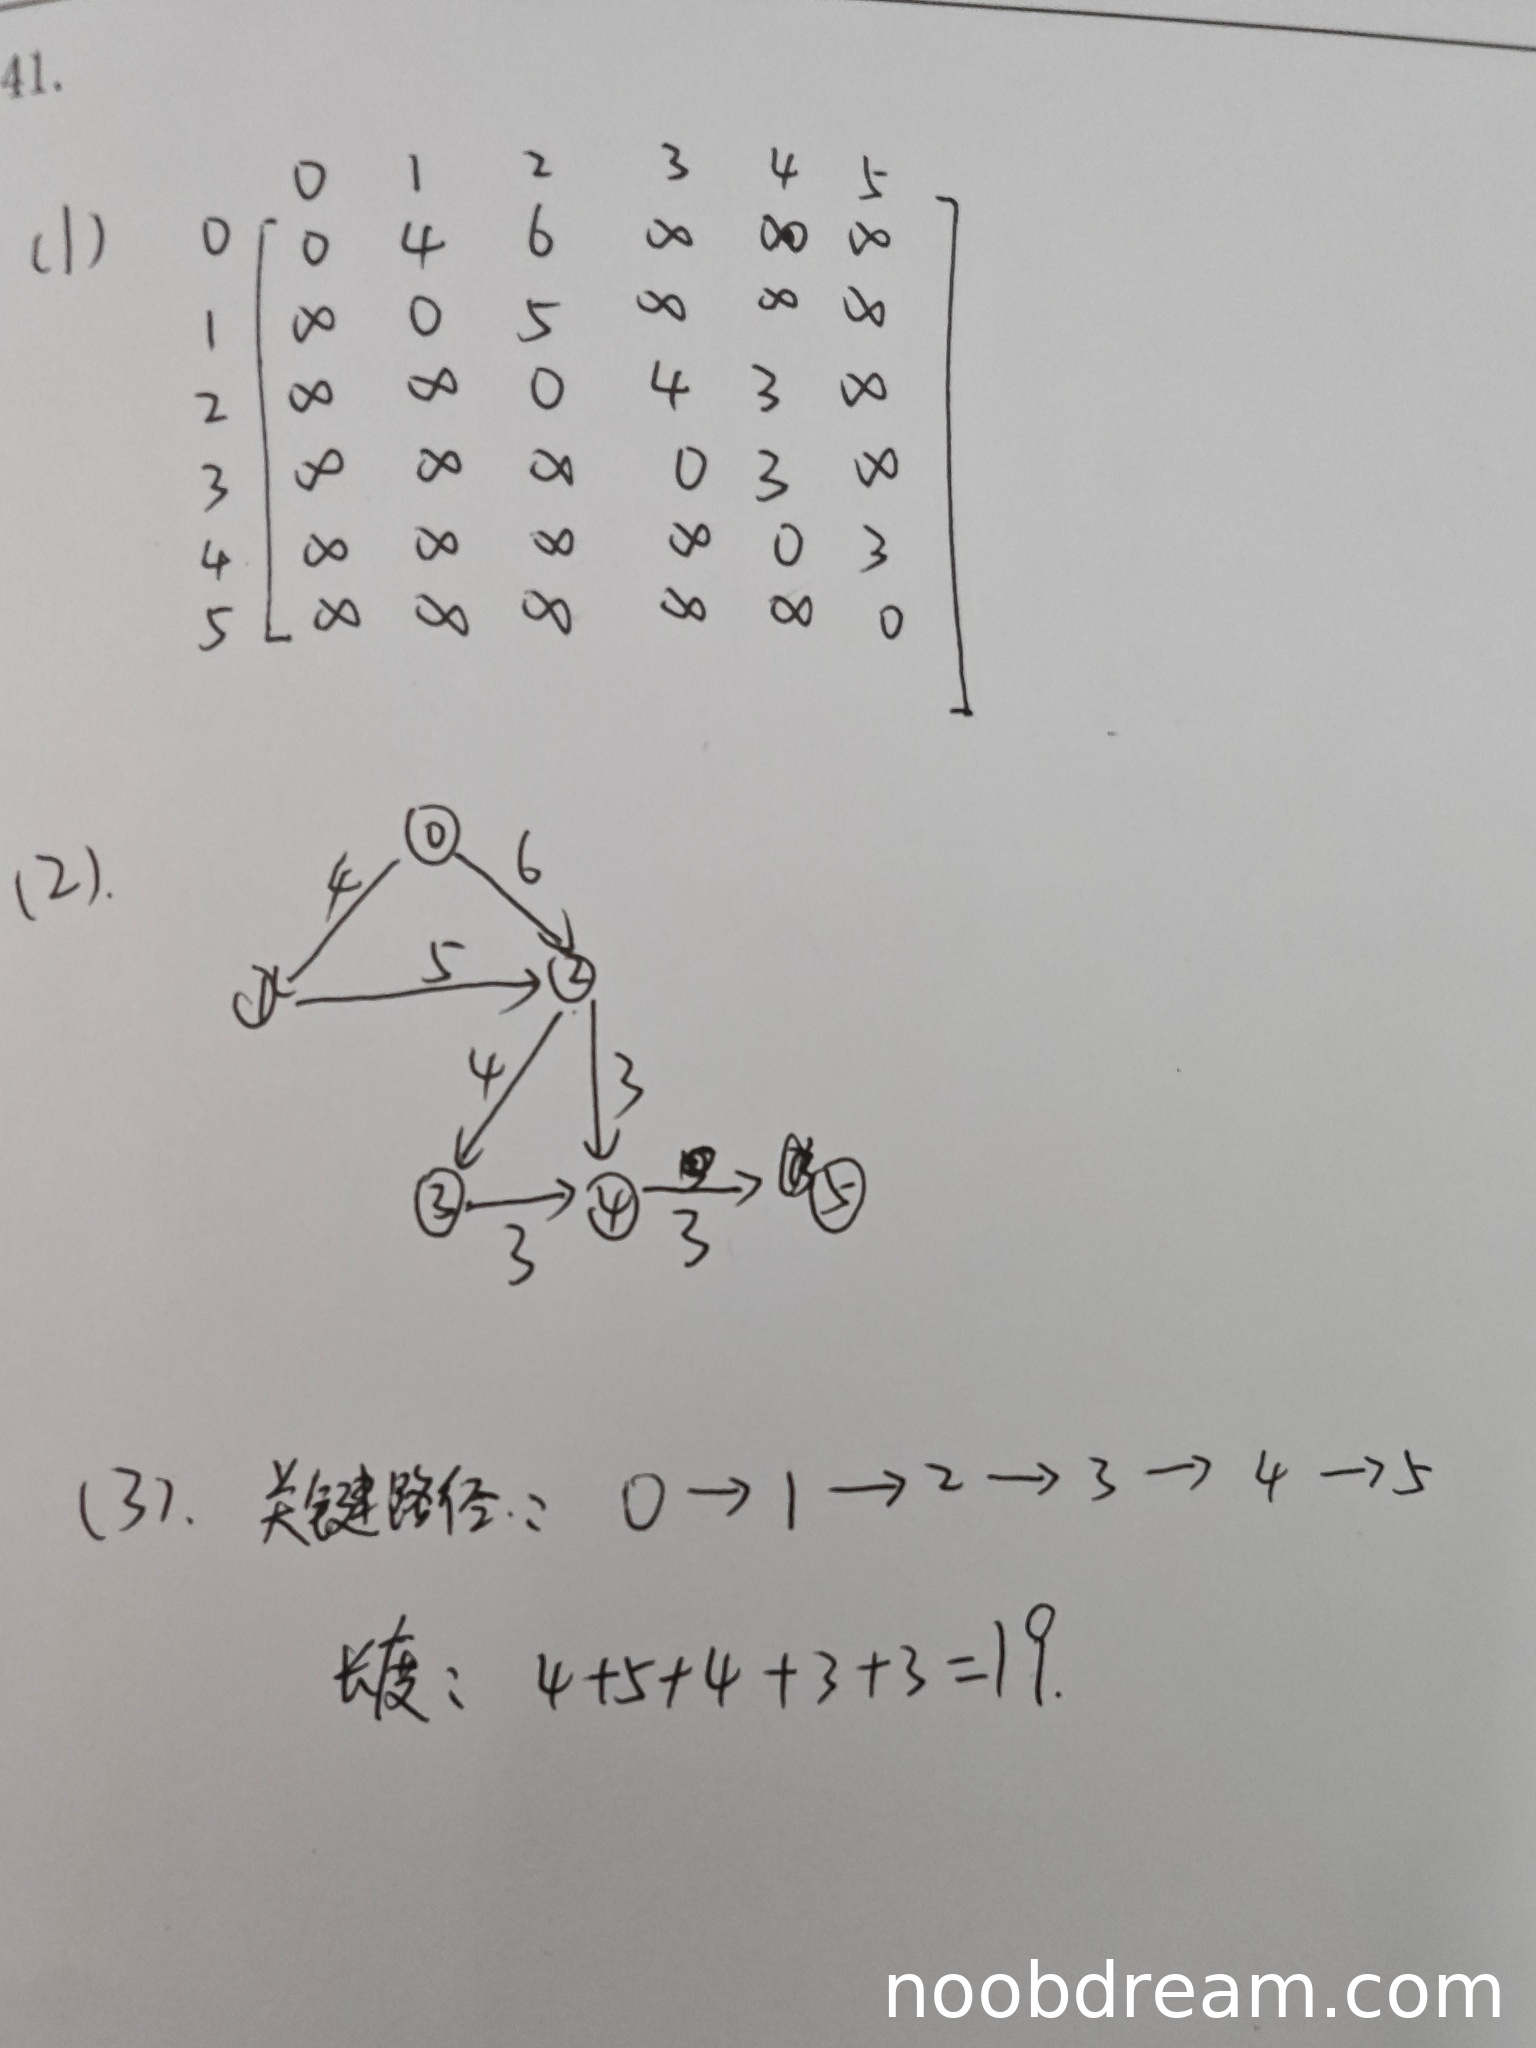 41.
0 1 2 3 4 5
(1) 0 0 4 6 ∞ ∞ ∞
1 ∞ 0 5 ∞ ∞ ∞
2 ∞ ∞ 0 4 3 ∞
3 ∞ ∞ ∞ 0 3 ∞
4 ∞ ∞ ∞ ∞ 0 3
5 ∞ ∞ ∞ ∞ ∞ 0
(2).
0
4 6
1 5 2
4 3
3 4 5
3 3
(3). 关键路径: 0→1→2→3→4→5
长度: 4+5+4+3+3=19.
noobdream.com